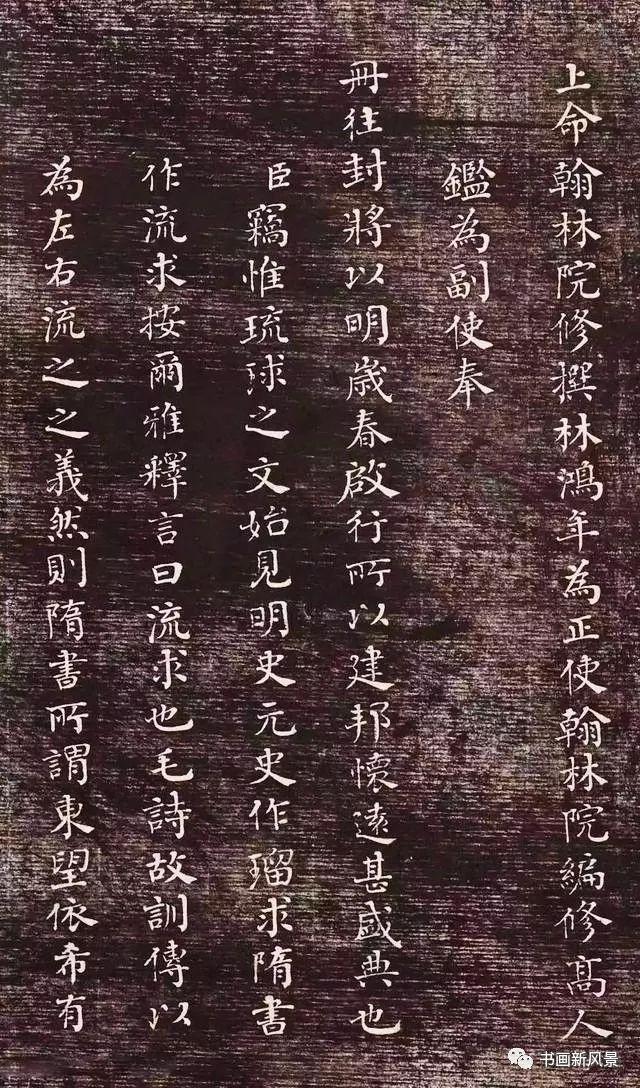 上命翰林院修撰林鴻年為正使翰林院編修髙人
鑑為副使奉
冊往封將以明歲春啟行所以建邦懷遠甚盛典也
臣竊惟琉球之文始見明史元史作瑠求隋書
作流求按爾雅釋言曰流求也毛詩故訓傳以
為左右流之之義然則隋書所謂東望依希有
书画新风景